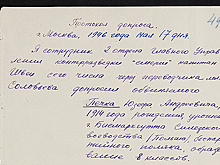 Протокол допроса.
г. Москва, 1946 года мая 17 дня.
Я сотрудник 2 отдела Главного Управ
ления контрразведки "Смерш" капитан
сего числа через переводчика
Соловьева допросил обвиняемого
Юргена Андреевича,
1914 года рождения, урожен
г. Бисмаркгютте Силезского
воеводства (Польша), беспа
тийного, поляка, образо
вание 8 классов.